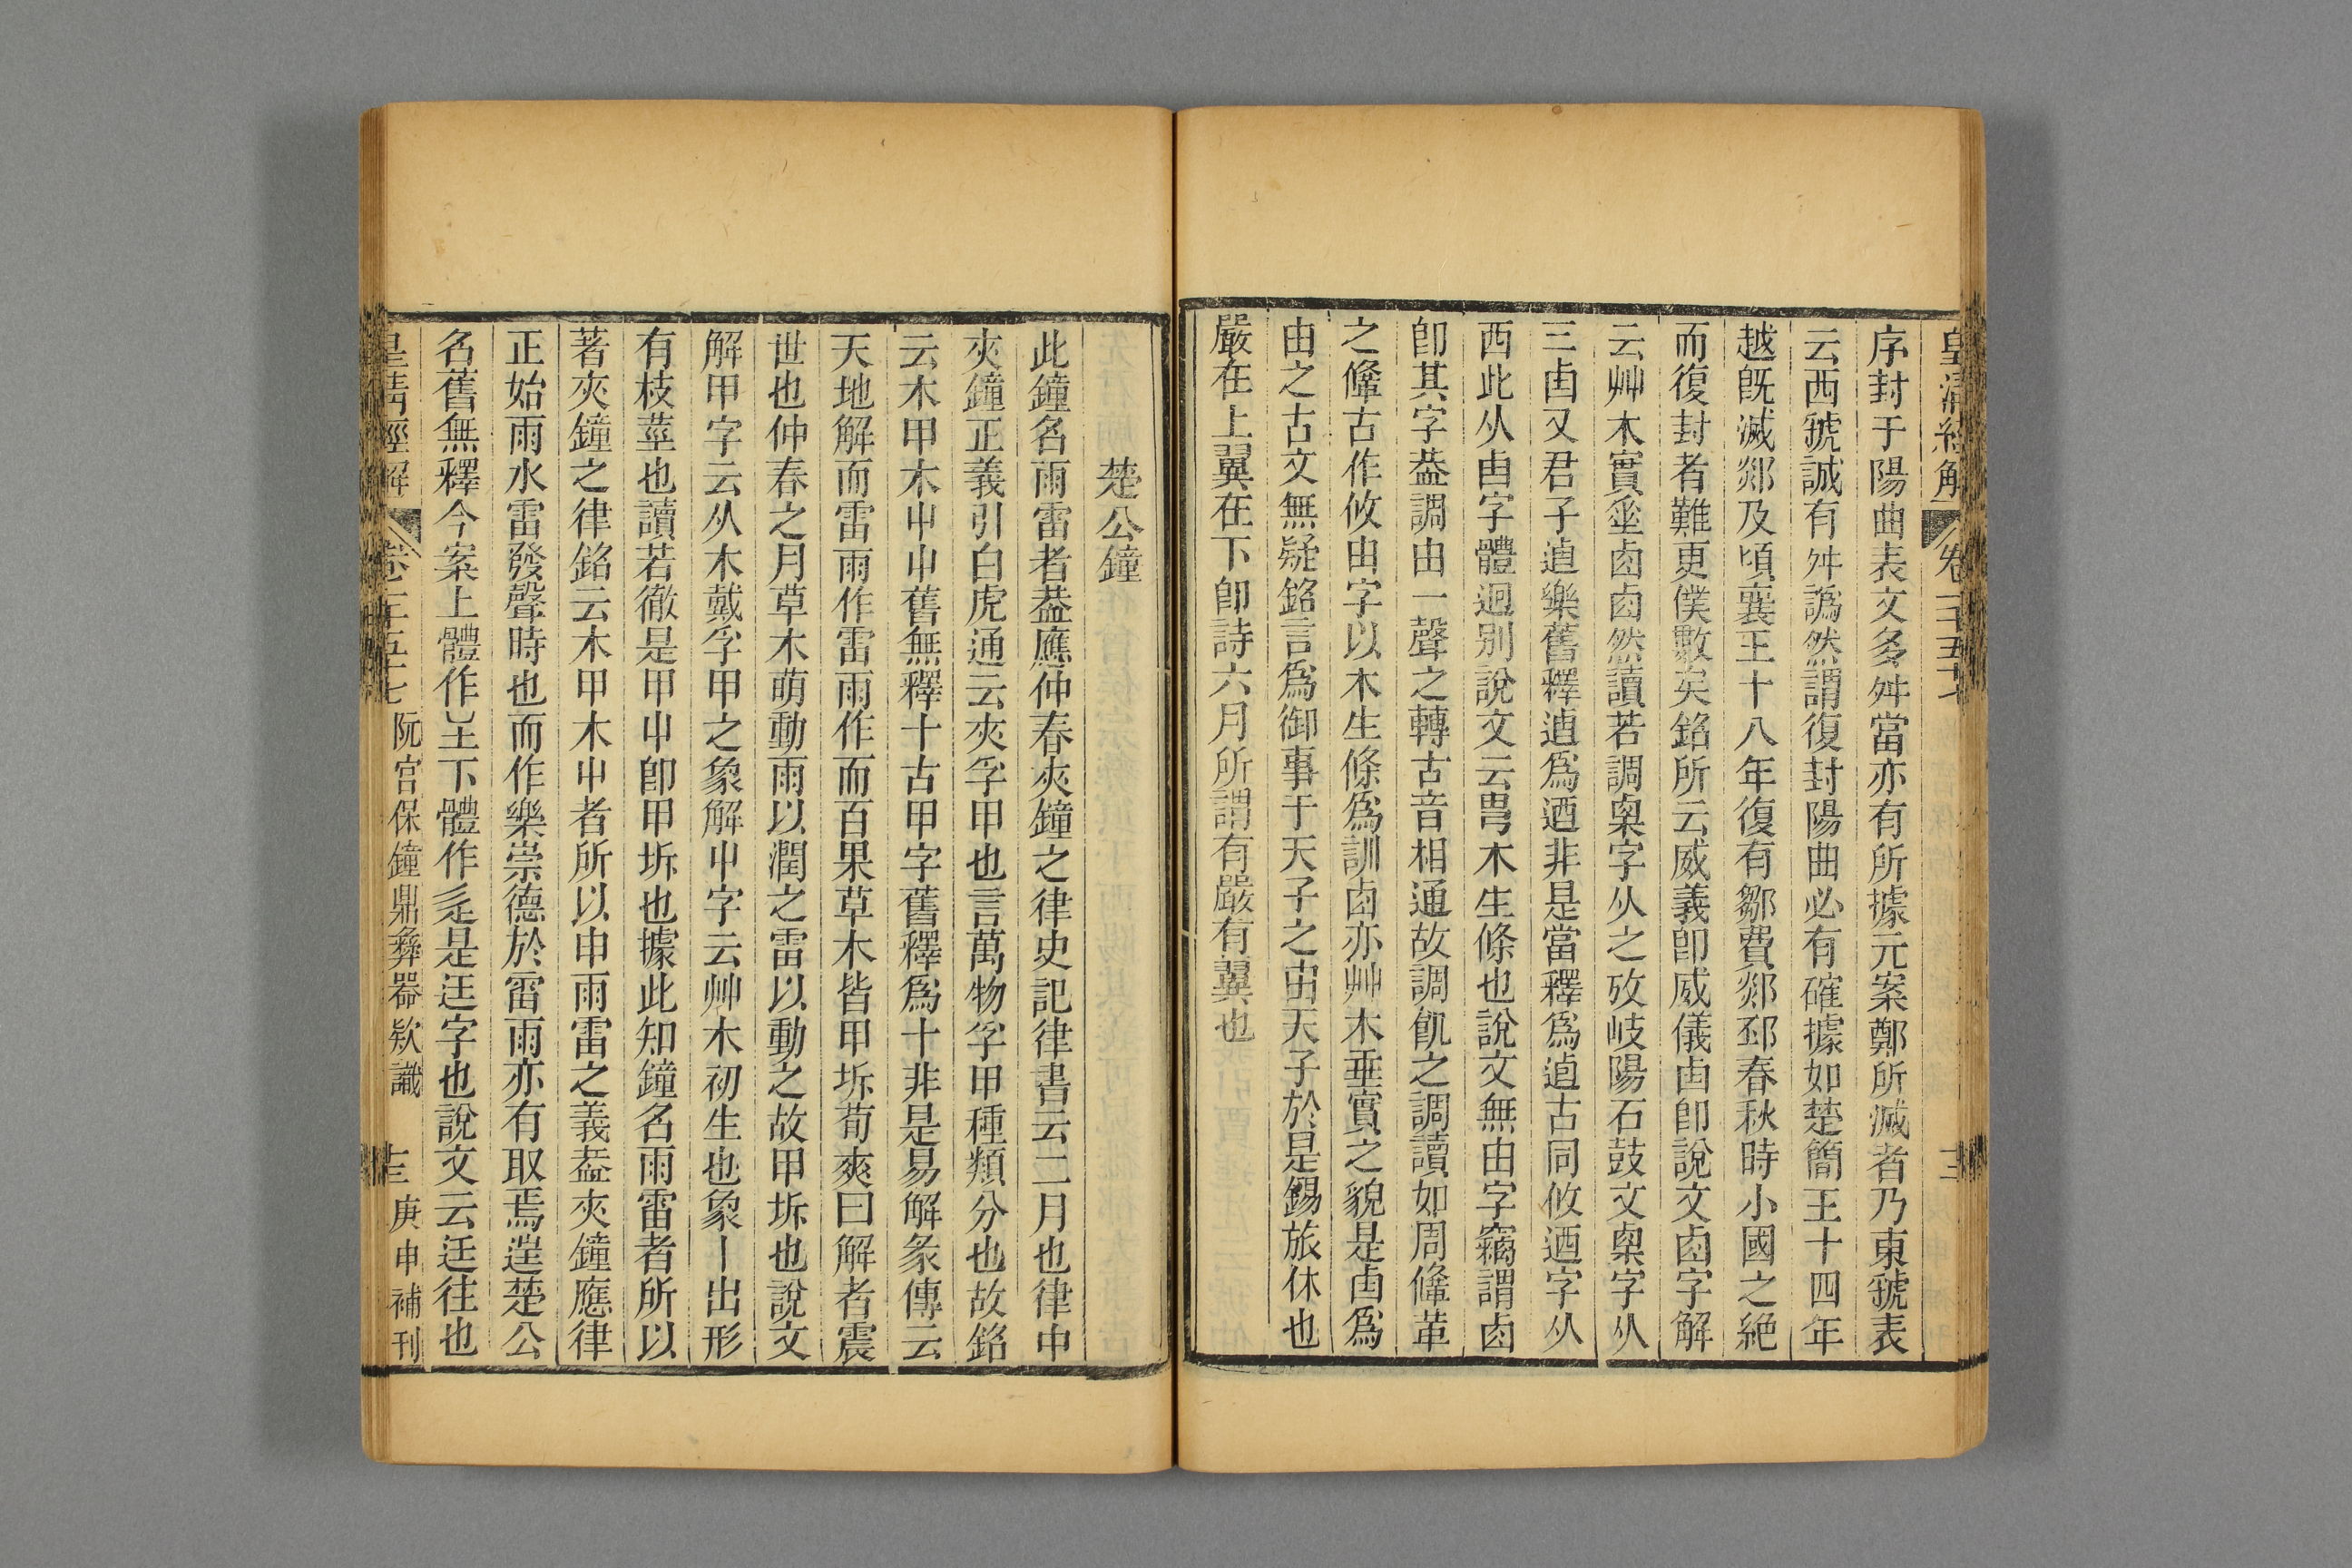 皇清經解 卷一千五十七 十三
序封于陽曲表文多舛當亦有所據元案鄭所滅者乃東虢表
云西虢誠有舛譌然謂復封陽曲必有確據如楚簡王十四年
越旣滅郯及頃襄王十八年復有鄒費郯邳春秋時小國之絶
而復封者難更僕數矣銘所云威義卽威儀卣卽說文卤字解
云艸木實𠂹卤卤然讀若調㮚字从之攷岐陽石鼓文㮚字从
三卣又君子逌樂舊釋逌爲迺非是當釋爲逌古同攸迺字从
西此从卣字體迥別說文云㽕木生條也說文無由字竊謂卤
卽其字葢調由一聲之轉古音相通故調飢之調讀如周鞗革
之鞗古作攸由字以木生條爲訓卤亦艸木垂實之貌是卣爲
由之古文無疑銘言爲御事于天子之由天子於是錫旅休也
嚴在上翼在下卽詩六月所謂有嚴有翼也
楚公鐘
此鐘名雨雷者葢應仲春夾鐘之律史記律書云二月也律中
夾鐘正義引白虎通云夾孚甲也言萬物孚甲種類分也故銘
云木甲木屮屮舊無釋十古甲字舊釋爲十非是易解彖傳云
天地解而雷雨作雷雨作而百果草木皆甲坼荀爽曰解者震
世也仲春之月草木萌動雨以潤之雷以動之故甲坼也說文
解甲字云从木戴孚甲之象解屮字云艸木初生也象丨出形
有枝莖也讀若徹是甲屮卽甲坼也據此知鐘名雨雷者所以
著夾鐘之律銘云木甲木屮者所以申雨雷之義葢夾鐘應律
正始雨水雷發聲時也而作樂崇德於雷雨亦有取焉逞楚公
名舊無釋今案上體作㞷下體作辵是迋字也說文云迋往也
皇清經解 卷一千五十七 阮宮保鐘鼎彝器款識 十三 庚申補刊